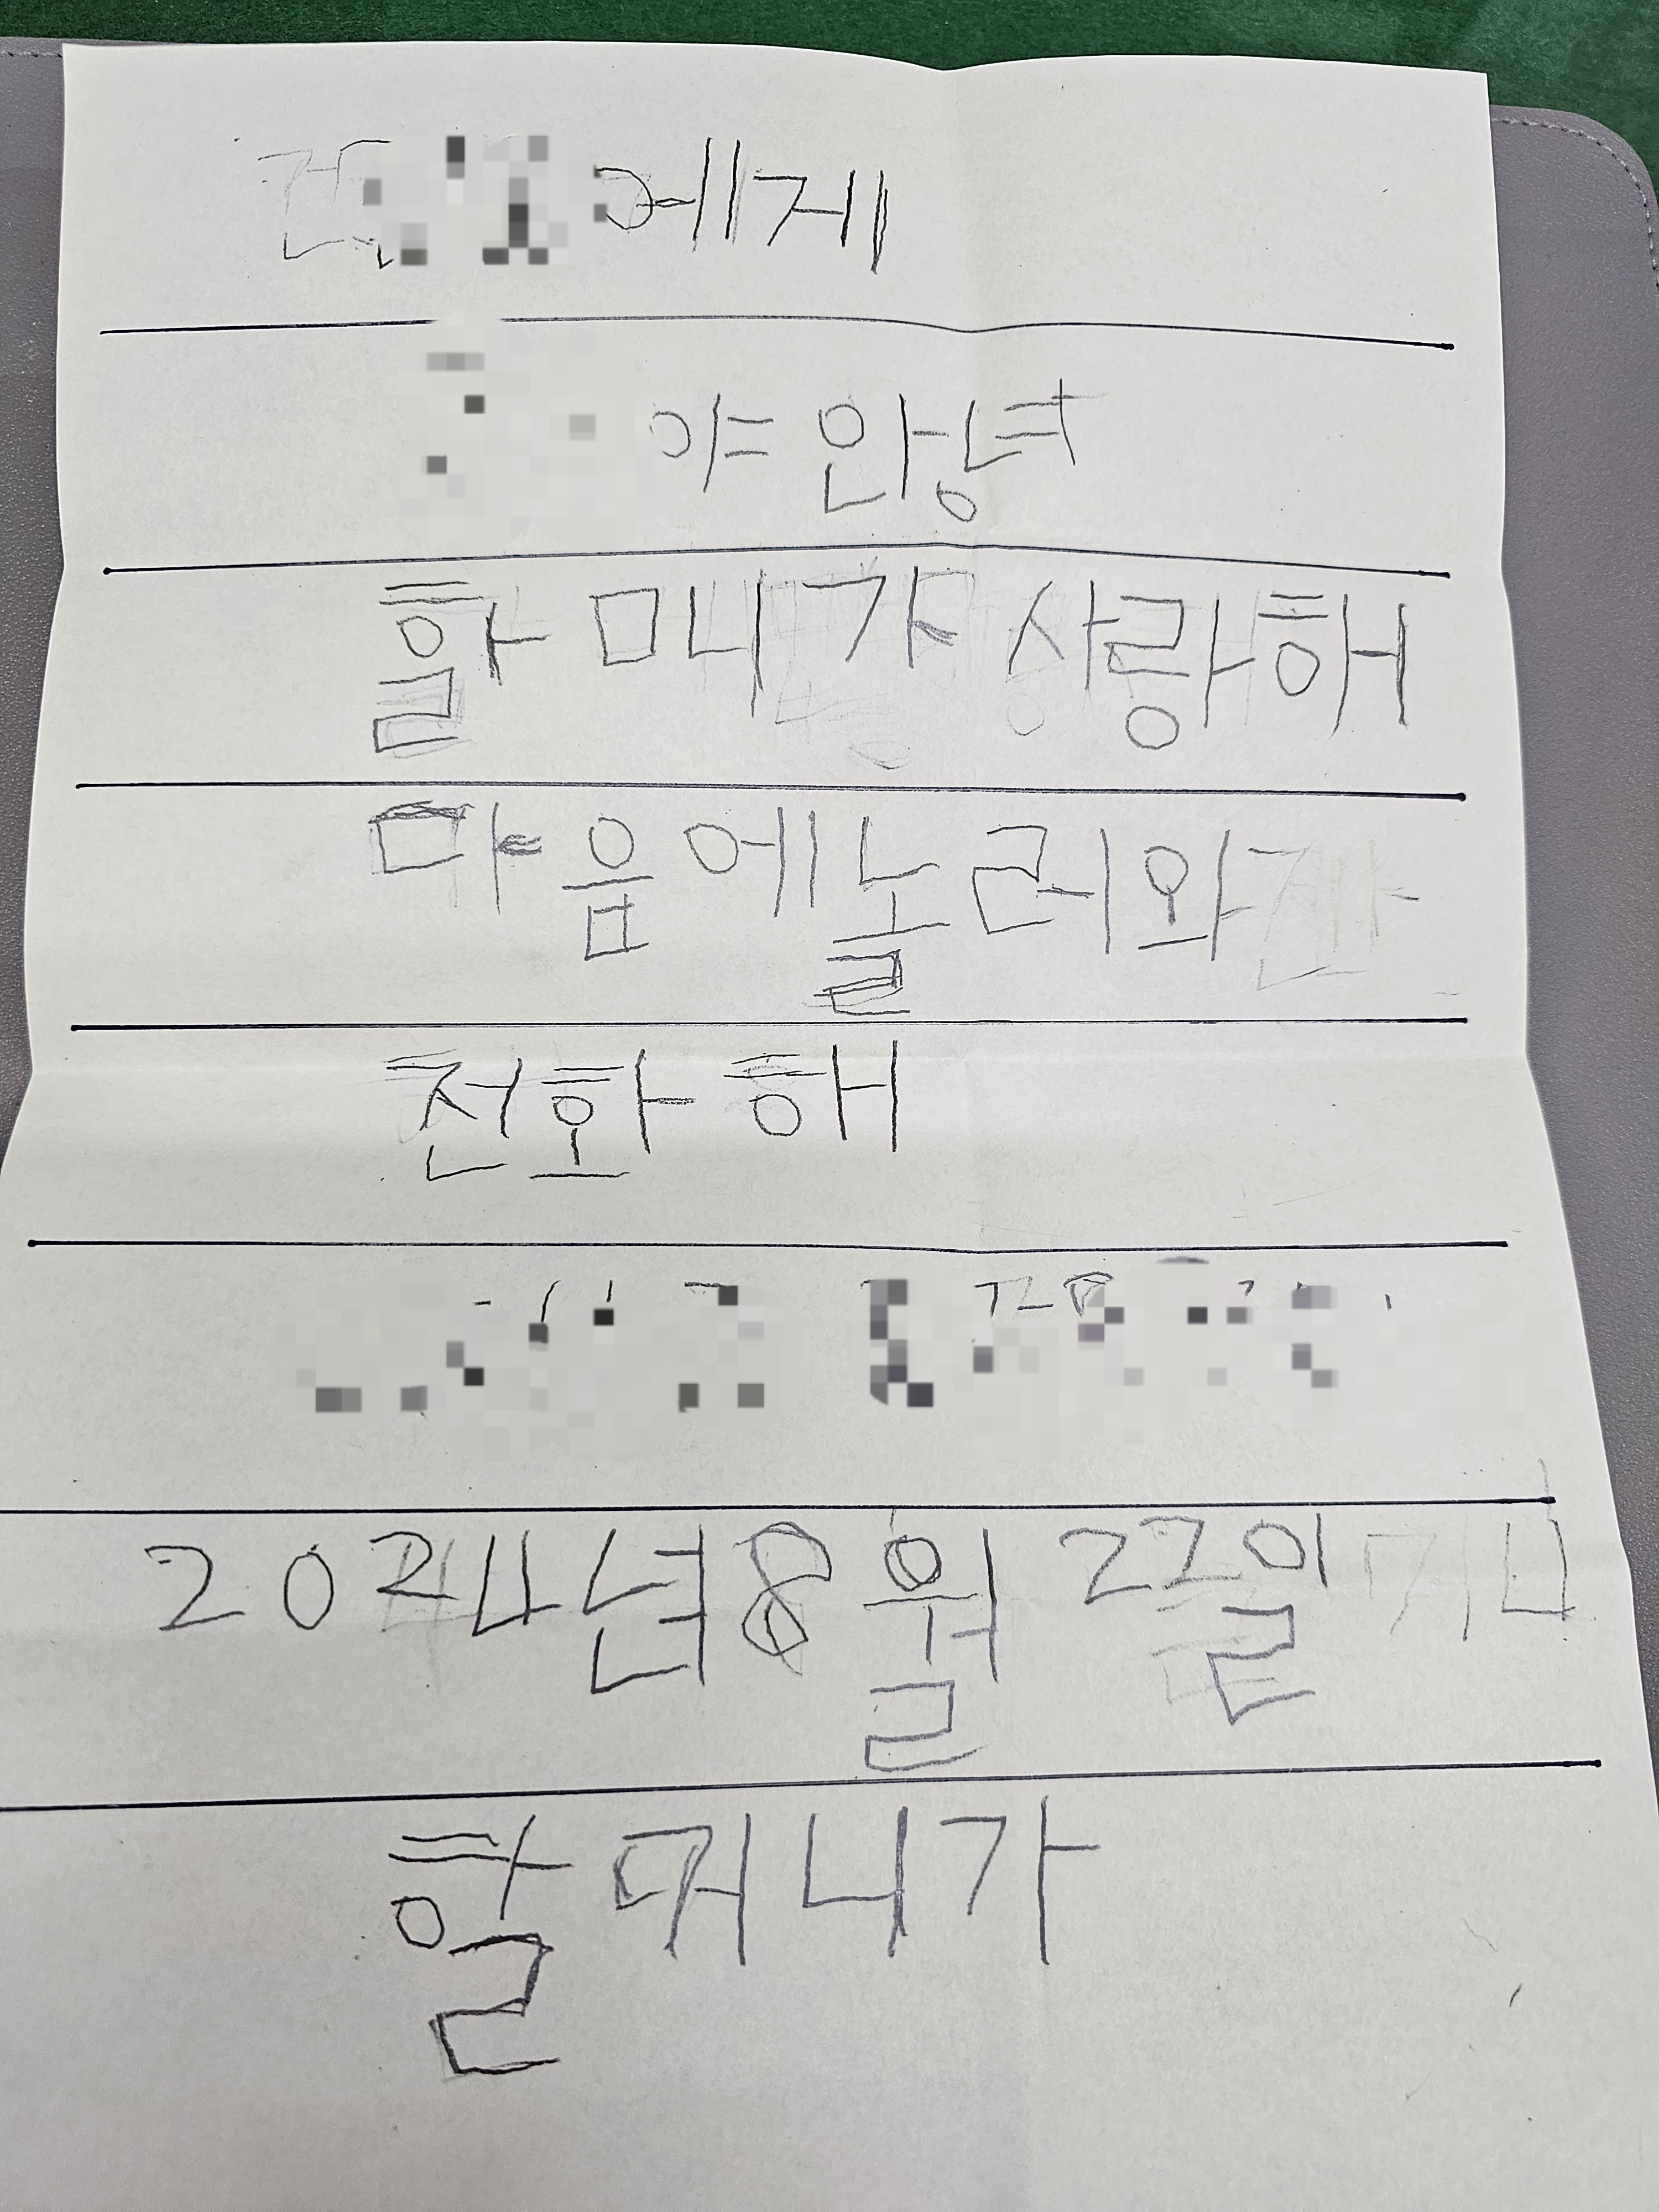 에게
야 안녕
할미니가 사랑해
마음에놀러와
전화해
2024년8월 22일
할머니가